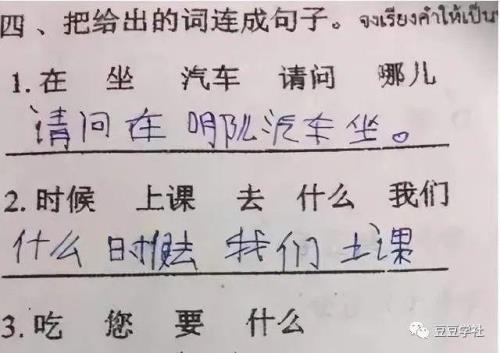 四、把给出的词连成句子。 จงเรียงคำให้เป็น
1. 在 坐 汽车 请问 哪儿
请问在 哪儿汽车坐。
2. 时候 上课 去 什么 我们
什么 时候去 我们 上课
3. 吃 您 要 什么
豆豆学社